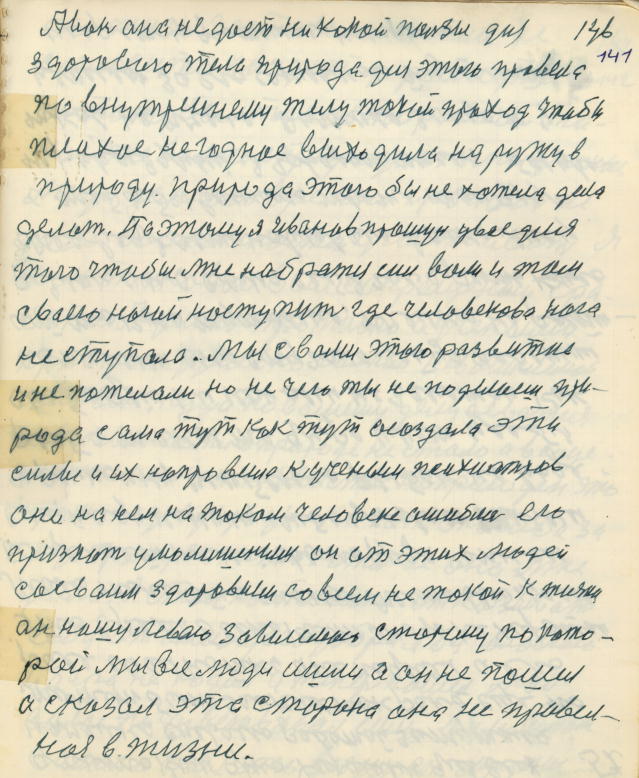 А вот она не дает ни какойползы для 136
141
здорового тела природа для этого провела
по внутреннему телу такой проход чтобы
плахое негодное выходила на ружу в
природу. природа этого бы не хотела дела
делат. Поэтому я Иванов прошу у все для
того чтобы мне набратся сил воли и там
своею ногой наступит где человекова нога
не ступала. Мы с вами этого развития
и не пожелали но не чего ты не поделаеш при-
рода сама тут как тут создала эти
силы и их направила к ученым психиатров
они на нем на таком человеке ошиблис его
признат умолишеным он от этих людей
своваим здоровым совсем не такой к жизни
он нашу леваю зависемаю сторону по кото-
рой мы все люди шли а он не пошел
а сказал эта сторона она не правел-
ная в жизни.